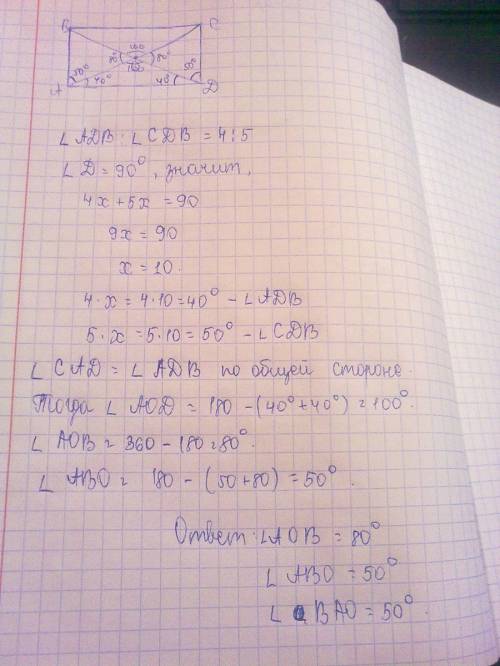 B C
100
80 80°
100
50° 50°
40° 40°
A D
∠ADB : ∠CDB = 4:5
∠D = 90°, значит,
4x + 5x = 90
9x = 90
x = 10.
4·x = 4·10 = 40° - ∠ADB
5·x = 5·10 = 50° - ∠CDB
∠CAD = ∠ADB по общей стороне.
Тогда ∠AOD = 180 - (40° + 40°) = 100°.
∠AOB = 360 - 180 = 80°.
∠ABO = 180 - (50 + 80) = 50°.
Ответ: ∠AOB = 80°
∠ABO = 50°
∠BAO = 50°.